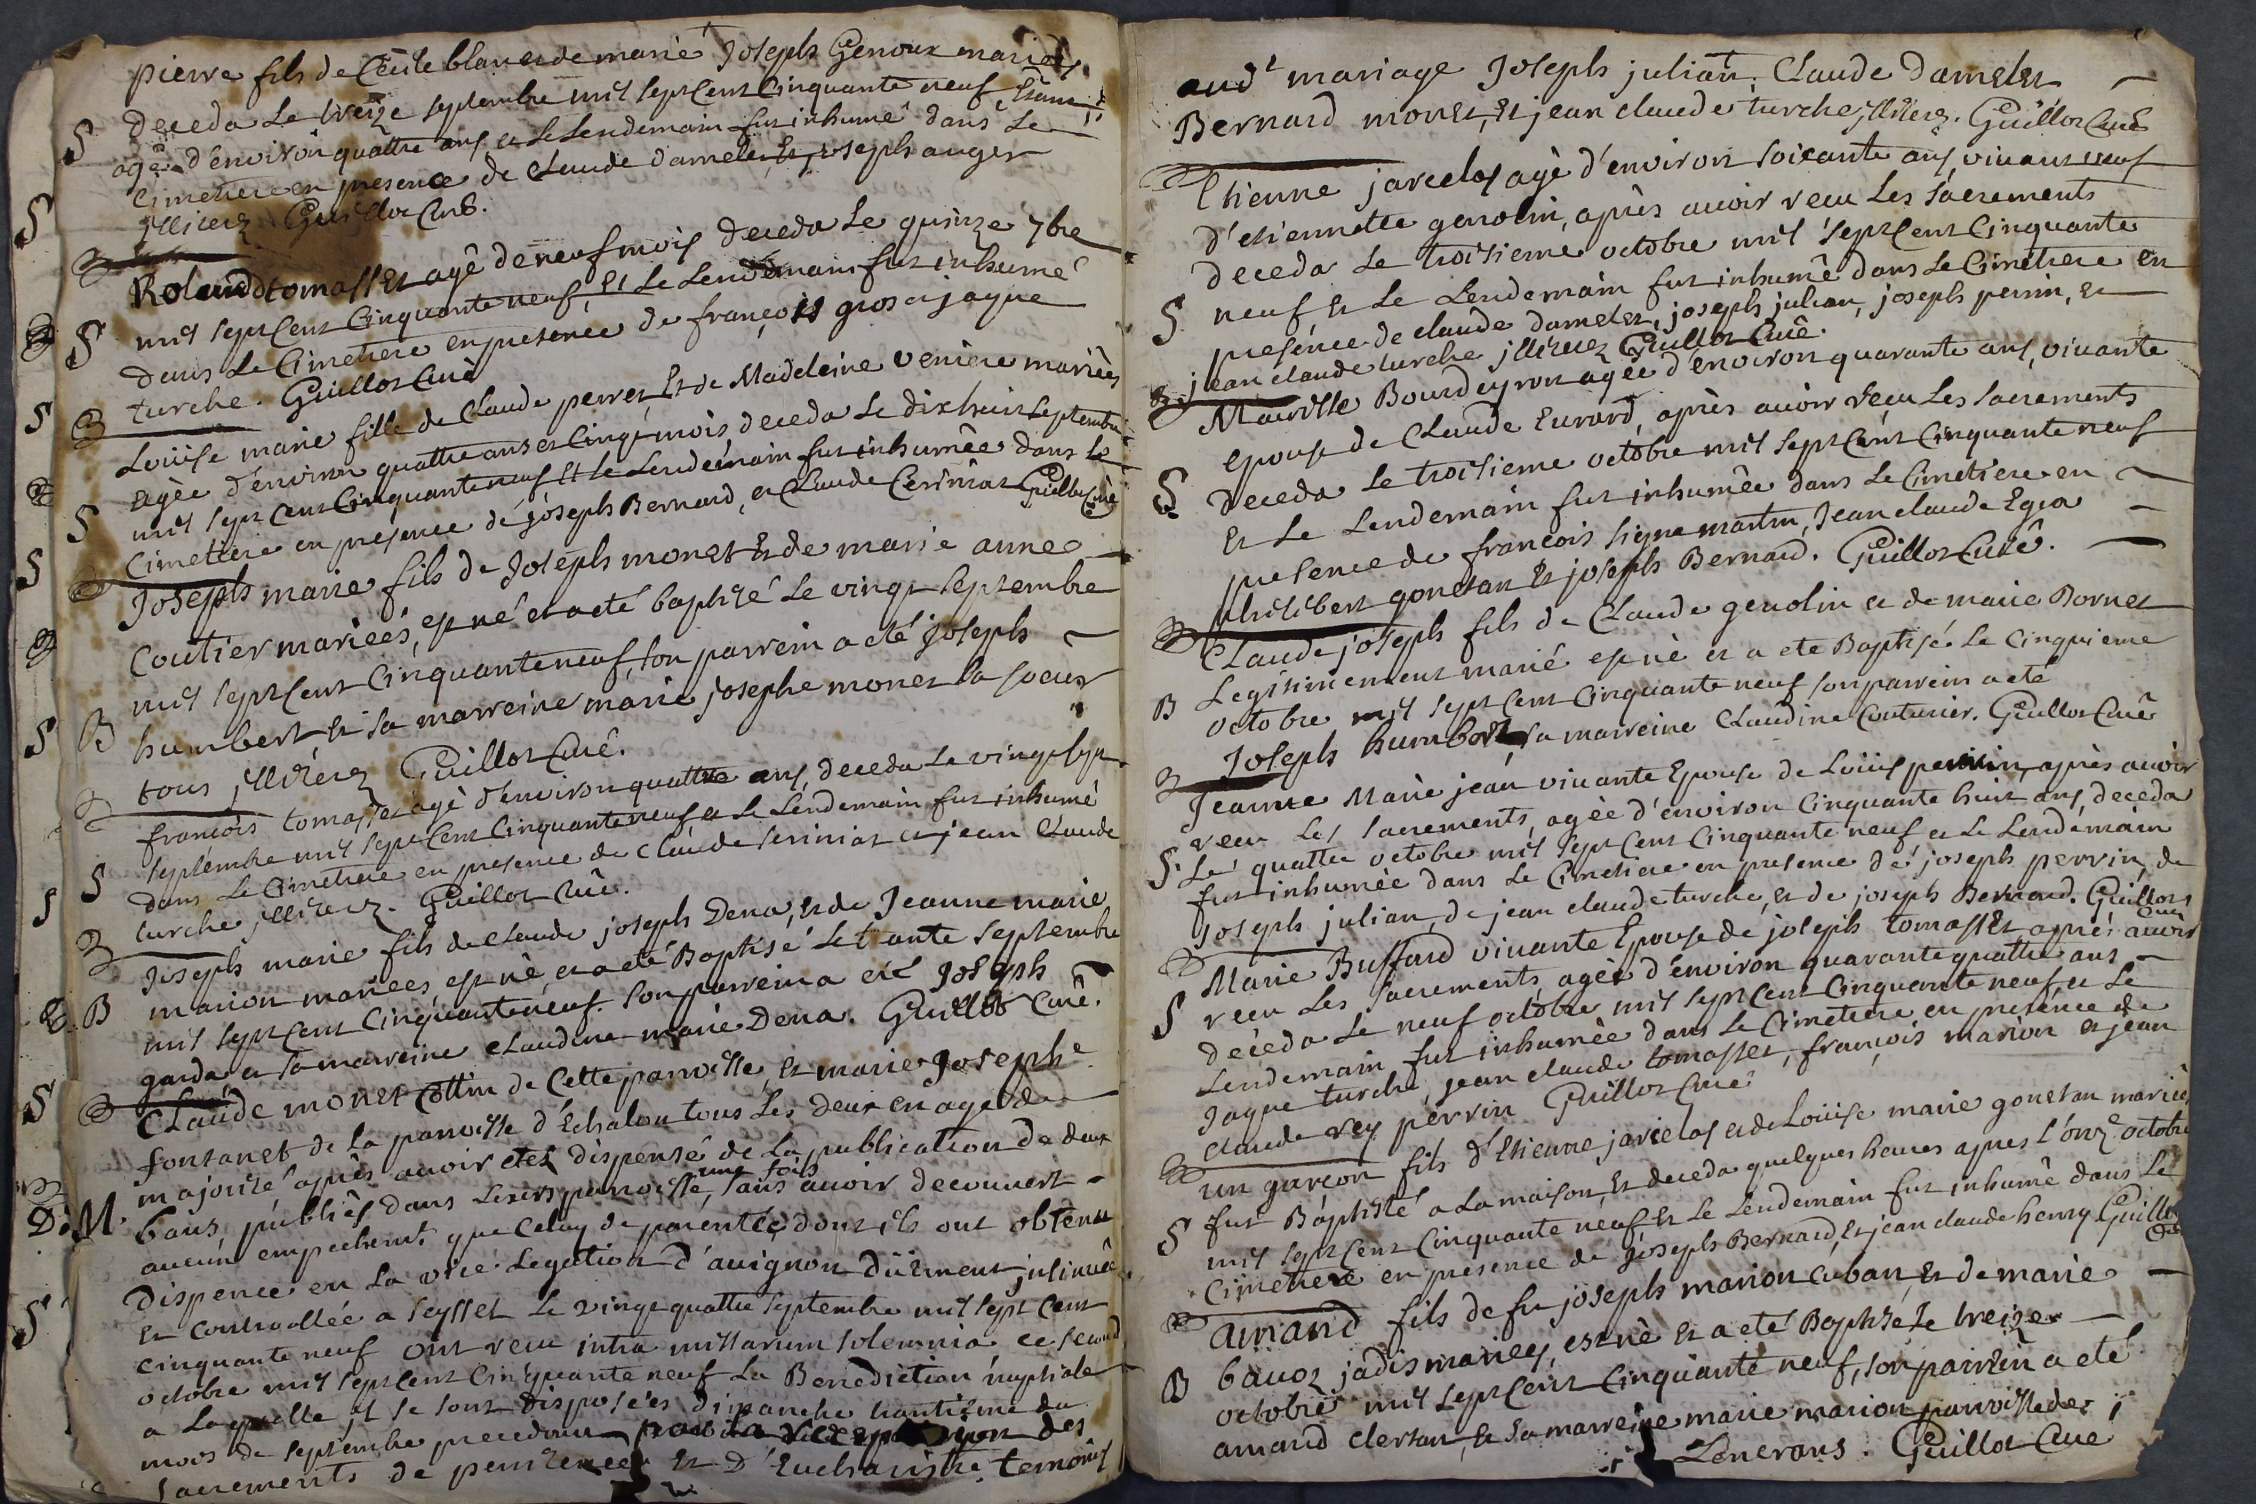 pierre fils de Cécile blanc et de marie Joseph Genoux mariés
deceda Le treize septembre mil sept Cent Cinquante neuf, Etant
agé d'environ quattre ans et le Lendemain fut inhumé dans Le
Cimetiere en presence de Claude damelet, Et joseph anger
illiterez Guillot Curé.
Roland tomasset agé de neuf mois deceda Le quinze 7bre
mil sept Cent Cinquante neuf, Et Le Lendemain fut inhumé
dans Le Cimetiere en presence de françois gros et jaque
turche. Guillot Curé
Loüise marie fille de Claude perret Et de Madeleine veniere mariées
agèe d'environ quattre ans et Cinq mois deceda Le dix huit septembre
mil sept cent Cinquante neuf Et le Lendemain fut inhumée dans Le
Cimetiere en présence de joseph Bernard, et Claude Ceriniat Guillot Curé
Joseph marie fils de Joseph monet Et de marie anne
Coutier mariees, est né et a eté baptizé Le vingt septembre
mil sept Cent Cinquante neuf, son parrein a eté joseph
humbert Et sa marreine marie josephe monet sa soeur
tous illiterez Guillot Curé.
françois tomasset agé d'environ quattre ans, deceda Le vingt sept
septembre mil sept Cent Cinquante neuf et Le Lendemain fut inhumé
dans Le Cimetiere en presence de Claude seriniat et jean Claude
turche illiterez. Guillot Curé.
Joseph marie fils de Claude joseph Dena, et de Jeanne marie
marion mariees, est né, et a eté Baptisé Le trante septembre
mil sept Cent Cinquante neuf. son parrein a eté Joseph
garda et sa marreine Claudine marie Dena. Guillot Curé.
Claude monet Cottin de Cette parroisse, Et marie Josephe
fontanet de La parroisse d'Echalon tous Les deux en age de
majorité après avoir etez dispensé de La publication de deux
bans, publiés dans Leurs parroisse, une fois sans avoir decouvert
aucun empechemt. que Celuy de parentée dont ils ont obtenu
dispence en La vice Legation d'avignon düement insinuée
Et controllée a seyssel Le vingt quattre septembre mil sept Cent
cinquante neuf ont recu intra missarum solemnia ce second
octobre mil sept Cent Cinquante neuf La Benediction nuptiale
a Laquelle il se sont disposées dimanche trantième du
mois de septembre precedant par La reception des
sacrements de penitence Et D'Eucharistie. temoins
audt mariage Joseph julian. Claude Damelet
Bernard monet, Et jean claude turche, illiterez. Guillot Curé
Etienne jarcelos agè d'environ soixante ans vivant veuf
d'etiennette genolin, après avoir recu Les sacrements
deceda Le troisieme octobre mil sept Cent Cinquante
neuf Et Le Lendemain fut inhumé dans Le Cimetiere en
presénce de claude damelet, joseph julian, joseph perrin, et
jean claude turche illiterez Guillot Curé.
Maurise Bourdeyron agèe d'environ quarante ans, vivante
epouse de Claude Eurard, après avoir reçu Les sacrements
deceda Le troisieme octobre mil sept Cent Cinquante neuf
Et Le Lendemain fut inhumée dans Le Cimetiere en
presence de francois signe martin, Jean claude Egra
philibert gonetan Et joseph Bernard. Guillot Curé.
Claude joseph fils de Claude genolin et de marie Bornet
Legitimement marié est nè et a ete Baptisé Le Cinquieme
octobre mil sept Cent Cinquante neuf son parrein a eté
Joseph humbert, sa marreine Claudine Couturier. Guillot Curé
Jeanne Marie jean vivante Epouse de Loüis perrin, après avoir
recu Les sacrements, agèe d'environ Cinquante huit ans, deceda
Le quattre octobre mil sept Cent Cinquante neuf et Le Lendemain
fut inhumèe dans Le Cimetiere en presence de joseph perrin, de
joseph julian, de jean claude turche, et de joseph Bernard. Guillot Curé
Marie Buffard vivante Epouse de joseph tomasset après avoir
recu Les sacrements, agèe d'environ quarante quattre ans
deceda Le neuf octobre mil sept Cent Cinquante neuf, et Le
Lendemain fut inhumèe dans Le Cimetiere en presénce de
Jaque turche, jean claude tomasset, françois marion et jean
Claude rey perrin Guillot Curé
un garçon fils d'Etienne jarcelos et de Loüise marie gonetan mariées
fut Baptisé a La maison, Et deceda quelques heures apres L'onze octobre
mil sept Cent Cinquante neuf Et Le Lendemain fut inhumé dans Le
Cimetiere en presence de joseph Bernard, et jean claude henry Guillot Curé
amand fils de fu joseph marion cuban, Et de marie
bauoz jadis mariey, est nè Et a eté Baptizé Le treize
octobre mil sept Cent Cinquante neuf, son parrein a eté
amand clertan, Et sa marreine marie marion parroisse des
Lenerans. Guillot Curé